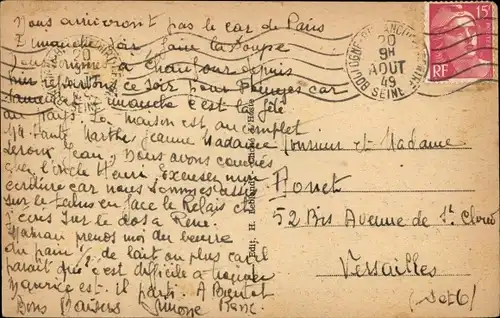 Nous arriveront pas le car de Paris
Dimanche soir faire la Soupe
à depuis
hier repartons ce soir pour car
Dimanche c'est la fête
au pays. La maison est au complet
Marthe, Jeanne Madame
Leroux Jean, Nous avons couchés
chez l'oncle Henri. Excusez mon
écriture car nous sommes assis
sur le talus en face le Relais et
j'écris sur le dos à René.
Maman prends moi du beurre
du pain 1/2 de lait ou plus car il
parait que c'est difficile à
Maurice est-il parti. A Bientôt
Bons Baisers Simone René
Edit. H.
BOULOGNE
20
9H
AOUT
49
SEINE
15F
RF
Monsieur et Madame
52 Bis Avenue de St Cloud
Versailles
(S et O)